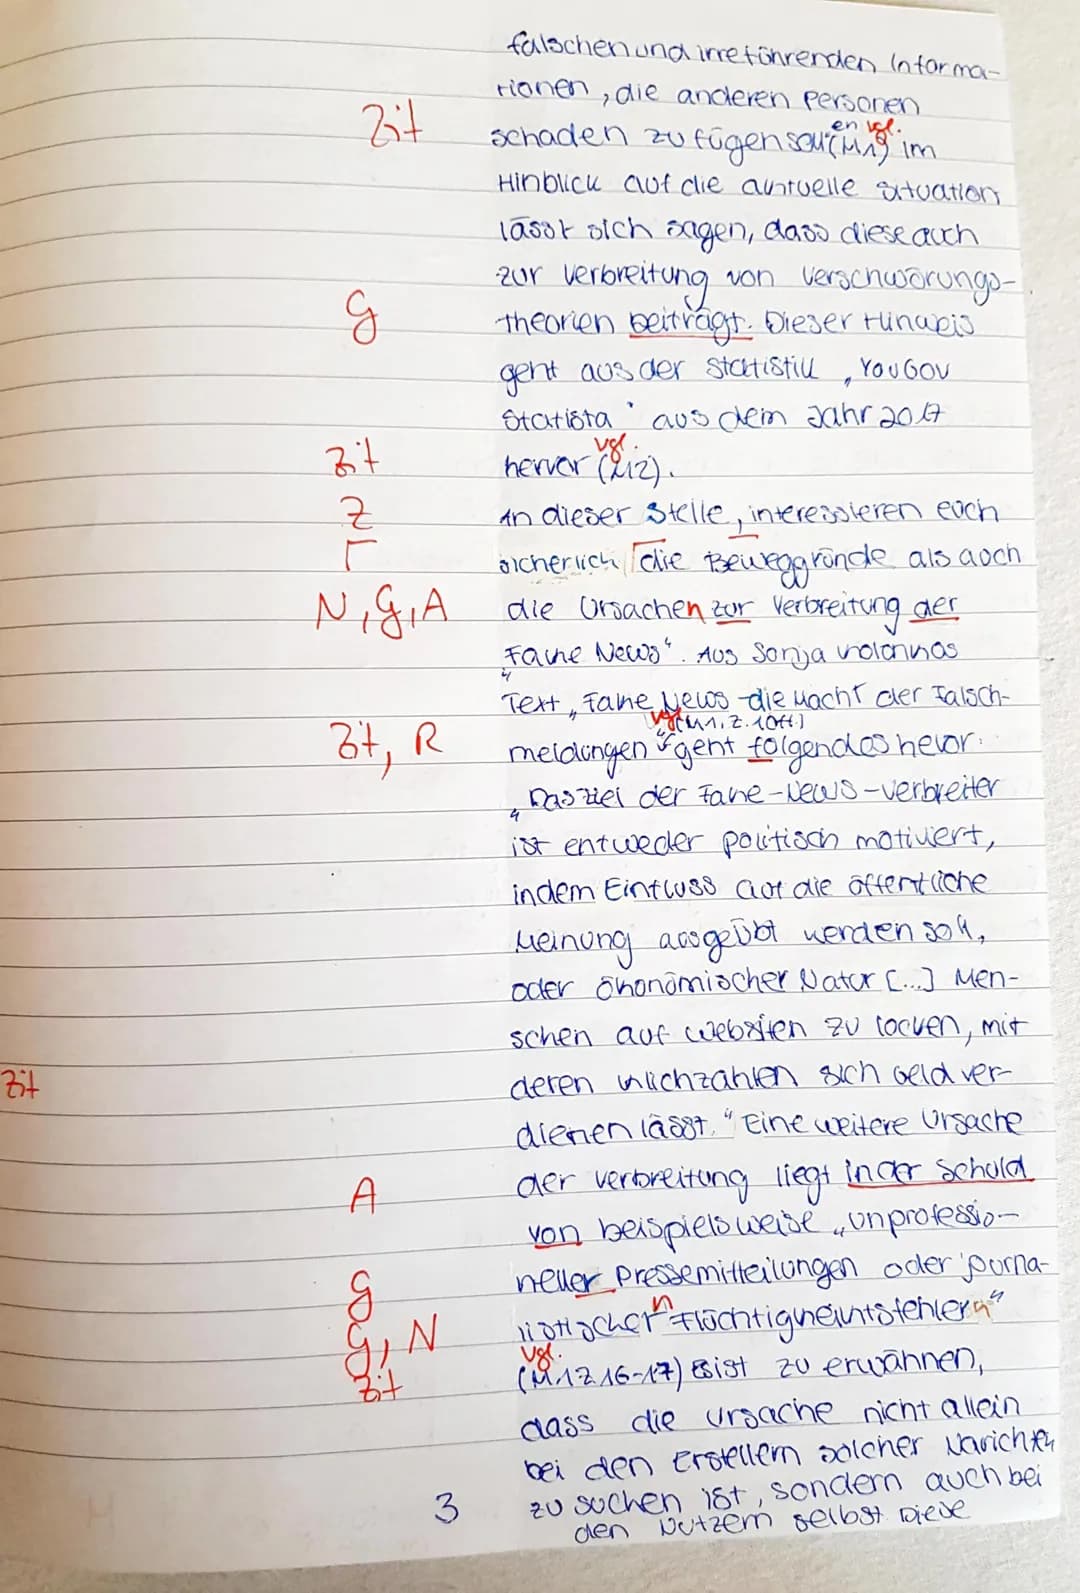 falschen und irreführenden Informa-
tionen, die anderen Personen
Zit schaden zufügen sollen (vgl. M1) im
Hinblick auf die aktuelle Situation
lässt sich sagen, dass diese auch
zur Verbreitung von Verschwörungs-
g theorien beiträgt. Dieser Hinweis
geht aus der Statistik „YouGov
Statista" aus dem Jahr 2017
Zit hervor (vgl. M2).
Z An dieser Stelle, interessieren euch
Γ sicherlich die Beweggründe als auch
N, g, A die Ursachen zur Verbreitung der
„Fake News". Aus Sonja
Text „Fake News - die Macht der Falsch-
Zit, R meldungen" vgl. (M1, Z. 10ff.) geht folgendes hevor:
„Das Ziel der Fake-News-verbreiter
ist entweder politisch motiviert,
indem Einfluss auf die öffentliche
Meinung ausgeübt werden soll,
oder ökonomischer Natur [...] Men-
schen auf websiten zu locken, mit
Zit deren Klickzahlen sich Geld ver-
dienen lässt." Eine weitere Ursache
A der verbreitung liegt in der Schuld
von beispielsweise „unprofessio-
g neller Pressemitteilungen oder journa-
g, N listischer n Flüchtigkeintsfehlern"
Zit (vgl. M1 Z 16-17) Es ist zu erwähnen,
dass die ursache nicht allein
bei den Erstellern solcher Narichten
3 zu suchen ist, sondern auch bei
den Nutzern selbst Diese